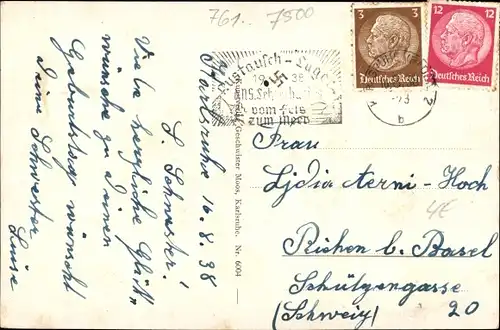 761.. 7500
3 3
Deutsches Reich
12 12
Deutsches Reich
Austausch-Lager
1938
vom Fels
zum Meer
b
2
Karlsruhe 16.8.38
L. Schwester!
Viele herzliche Glück-
wünsche zu Deinem
Geburtstag wünscht
Deine Schwester
Luise
Geschwister Moos, Karlsruhe. Nr. 6004
Frau
Lydia Aerni-Hoch
4E
Riehen b. Basel
Schützengasse
(Schweiz) 20